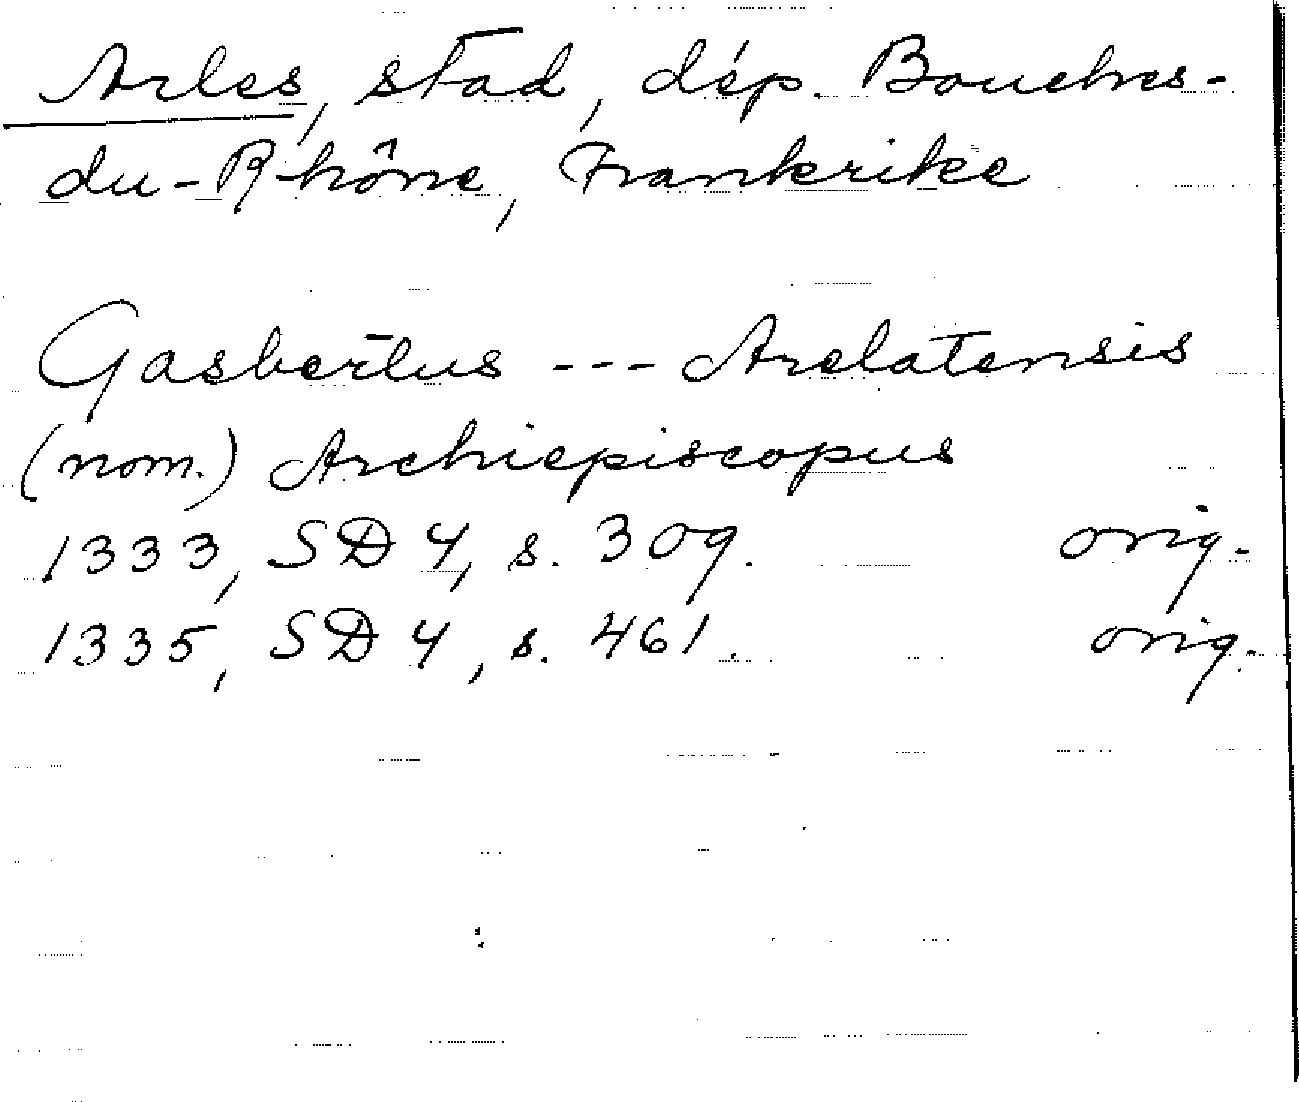 Arles, stad, dép. Bouches-
du-Rhône, Frankrike
Gasbertus --- Arelatensis
(nom.) Archiepiscopus
1333, SD 4, s. 309. orig.
1335, SD 4, s. 461. orig.